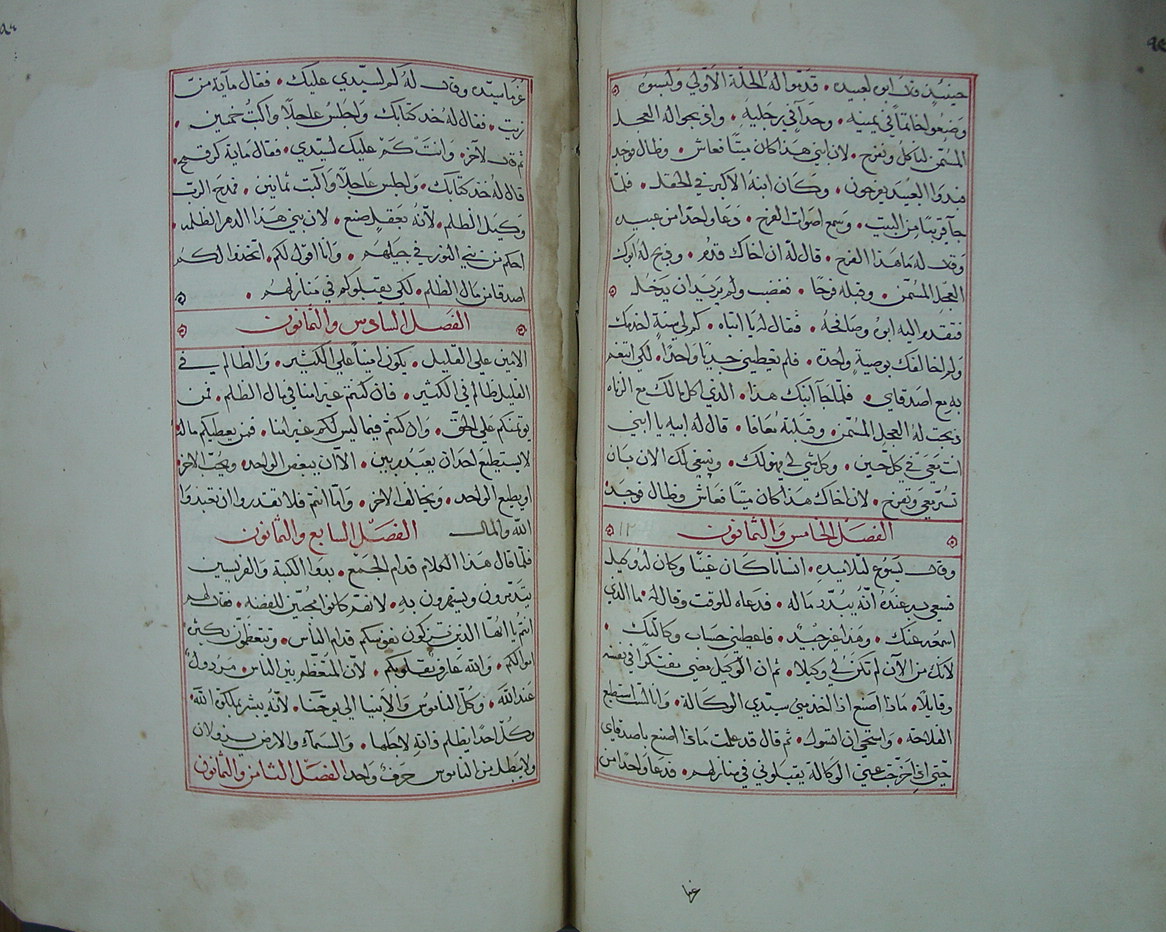 حينيذ قال ابوه لعبيده • قدموا له الحلة الاولي والبسوه
وضعوا خاتما في يمينه • وحدا في رجليه • واذبحوا له العجل
المسمن لناكل ونفرح • لان ابني هذا كان ميتا فعاش • وضال فوجد
فبدوا العبيد يفرحون • وكان ابنه الاكبر في الحقل • فلما
جا قريبا من البيت • وسمع اصوات الفرح • دعا واحدا من عبيده
وقال له ما هذا الفرح • قال له ان اخاك قدم • وذبح له ابوك
العجل المسمن • وقبله فرحا • فغضب ولم يريد ان يدخل
فتقدم اليه ابوه وصافحه • فقال له يا ابتاه • كم لي سنة اخدمك
ولم اخالفك بوصية واحدة • فلم تعطيني جديا واحدا • لكي اتنعم
به مع اصدقاي • فلما جا ابنك هذا • الذي اكل مالك مع الزناه
ذبحت له العجل المسمن • وقبلته معافا • قال له ابيه يا ابني
انت معي في كل حين • وكل شي لي فهو لك • وينبغي لك الان بان
تسر معي وتفرح • لان اخاك هذا كان ميتا فعاش وضال فوجد
الفصل الخامس والثمانون ١٢
وقال يسوع لتلاميده • انسانا كان غنيا وكان له وكيل
فسعي به عنده انه يبدد ماله • فدعاه للوقت وقال له • ما الذي
اسمعه عنك • وهذا غير جيد • فاعطني حساب وكالتك •
لانك من الآن لم تكن لي وكيلا • ثم ان الوكيل مضي يفتكر في نفسه
وقايلا • ماذا اصنع اذا اخذ مني سيدي الوكالة • وانا لست استطيع
الفلاحة • واستحي ان اتسول • ثم قال قد علمت ماذا اصنع باصدقاي
حتي اذا خرجت عني الوكالة يقبلوني في منازلهم • فدعا واحدا من
غرما
غرما سيده وقال له كم لسيدي عليك • فقال ماية منت
زيت • فقال له خد كتابك واجلس عاجلا واكتب خمسين •
ثم قال لآخر • وانت كم عليك لسيدي • فقال ماية كر قمح •
قال له خد كتابك • واجلس عاجلا واكتب ثمانين • فمدح الرب
وكيل الظلم • لانه بعقل صنع • لان بني هذا الدهر الظلمه
احكم من بني النور في جيلهم • وانا اقول لكم • اتخذوا لكم
اصدقا من مال الظلم • لكي يقبلوكم في منازلهم •
الفصل السادس والثمانون
الامين علي القليل • يكون امينا علي الكثير • والظالم في
القليل ظالم في الكثير • فان كنتم غير امنا في مال الظلم • فمن
يوتمنكم علي الحق • وان كنتم فيما ليس لكم غير امنا • فمن يعطيكم مالكم
لا يستطيع احدا ان يعبد ربين • الا ان يبغض الواحد • ويحب الاخر
او يطيع الواحد • ويخالف الاخر • وانما انتم فلا تقدروا ان تعبدوا
الله والمال الفصل السابع والثمانون
فلما قال هذا الكلام قدام الجمع • بدوا الكتبة والفريسين
يتدمرون ويستهزون به • لانهم كانوا محبين للفضه • فقال لهم
انتم يا ايها الذين تزكون نفوسكم قدام الناس • وتتعظمون بكثرة
اموالكم • والله عارف بقلوبكم • لان المتعظم بين الناس • مردول
عند الله • وكل الناموس والانبيا الي يوحنا • لانه يبشر بملكوة الله •
وكل احدا يظلم ذاته لاجلها • والسماء والارض يزولان
ولا يبطل من الناموس حرف واحد الفصل الثامن والثمانون